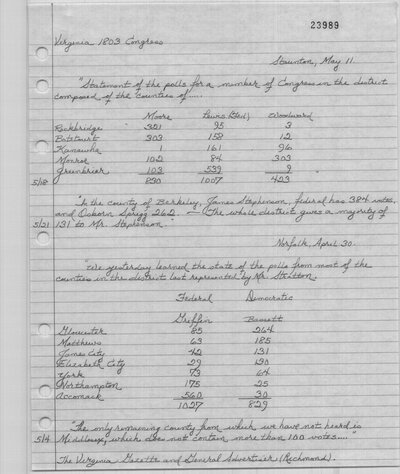 23989
Virginia 1803 Congress
Staunton, May 11.
"Statement of the polls for a member of Congress in the district
composed of the counties of.....
Moore Lewis (Fed) Woodward
Rockbridge 321 95 3
Botetourt 303 158 12
Kanawha 1 161 96
Monroe 102 84 303
Greenbrier 103 539 9
5/18 830 1007 423
"In the county of Berkeley, James Stephenson, federal has 384 votes,
and Osborn Sprigg 262. — (The whole district gives a majority of
5/21 131 to Mr. Stephenson."
Norfolk, April 30.
"We yesterday learned the state of the polls from most of the
counties in the district last represented by Mr. Stratton.
Federal Democratic
Griffin Bassett
Gloucester 85 264
Matthews 63 185
James City 42 131
Elizabeth City 29 130
York 73 64
Northampton 175 25
Accomack 560 30
1027 829
"The only remaining county from which we have not heard is
5/4 Middlesex, which does not contain more than 100 votes...."
The Virginia Gazette and General Advertiser (Richmond).